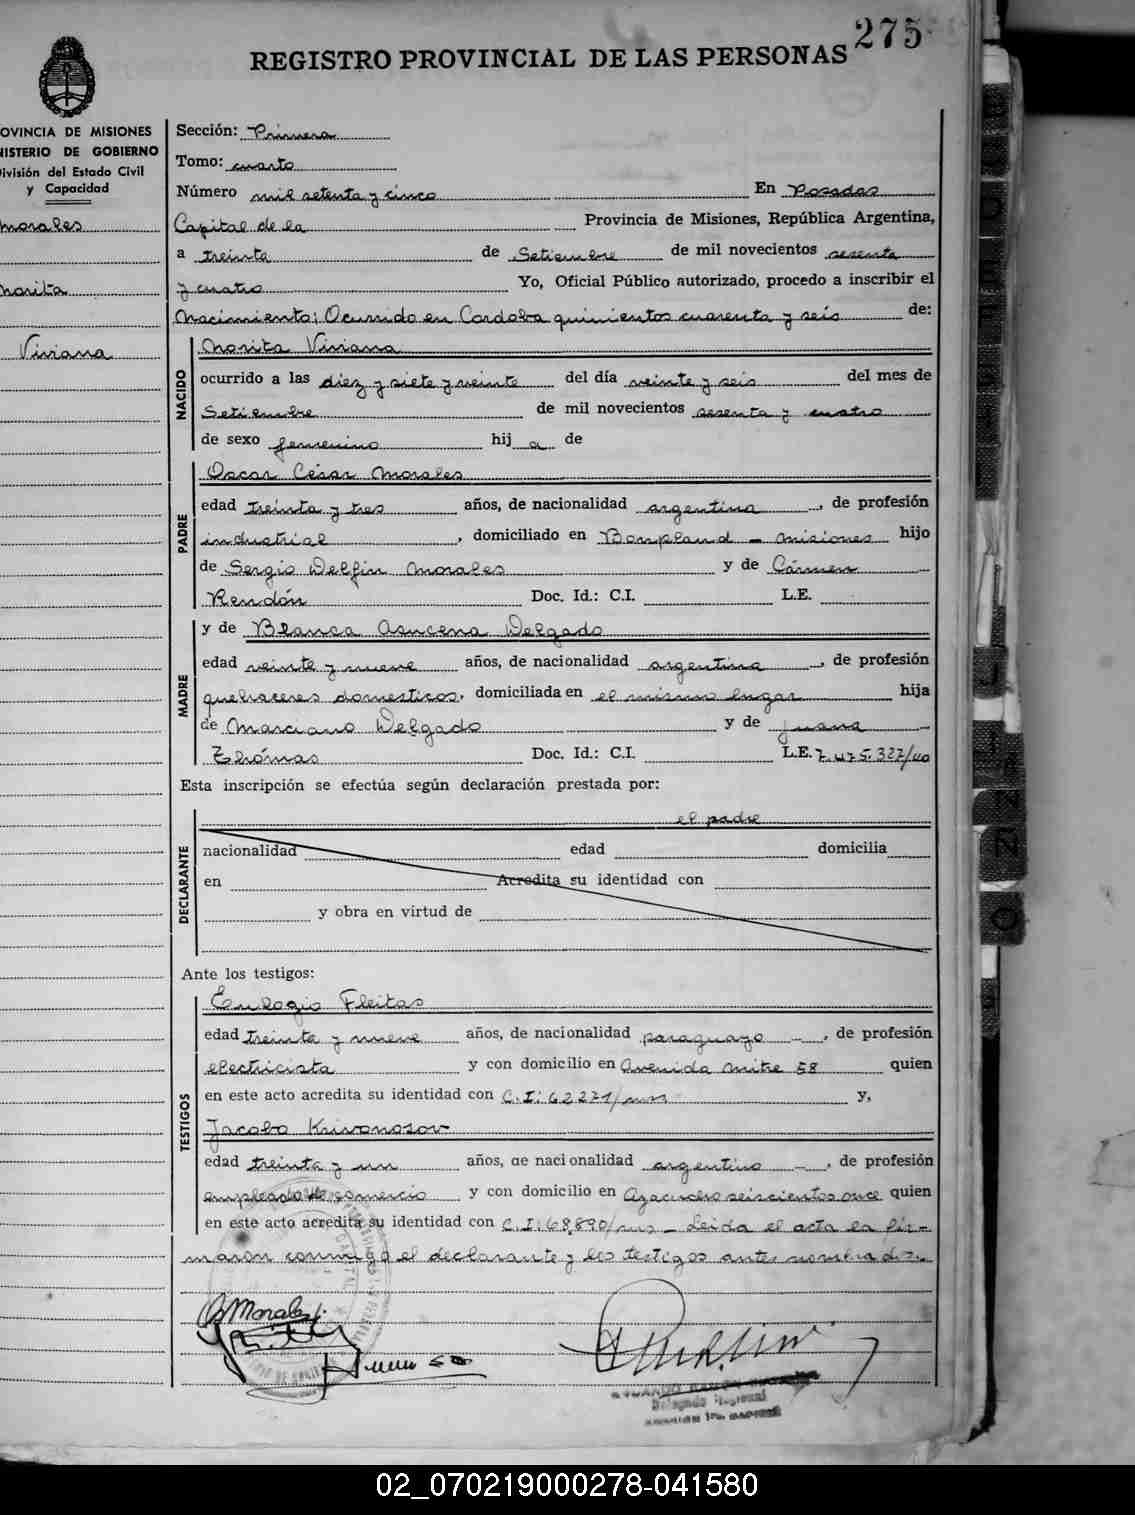 275
REGISTRO PROVINCIAL DE LAS PERSONAS
OVINCIA DE MISIONES
NISTERIO DE GOBIERNO
División del Estado Civil
y Capacidad
Morales
Norita
Viviana
Sección: Primera
Tomo: cuarto
Número mil setenta y cinco En Posadas
Capital de la Provincia de Misiones, República Argentina,
a treinta de Setiembre de mil novecientos sesenta
y cuatro Yo, Oficial Público autorizado, procedo a inscribir el
Nacimiento; Ocurrido en Cordoba quinientos cuarenta y seis de:
NACIDO
Norita Viviana
ocurrido a las diez y siete y veinte del día veinte y seis del mes de
Setiembre de mil novecientos sesenta y cuatro
de sexo femenino hij a de
PADRE
Oscar César Morales
edad treinta y tres años, de nacionalidad argentina, de profesión
industrial, domiciliado en Bompland - Misiones hijo
de Sergio Delfin Morales y de Cármen
Rendón Doc. Id.: C.I. L.E.
MADRE
y de Blanca Asucena Delgado
edad veinte y nueve años, de nacionalidad argentina, de profesión
quehaceres domesticos, domiciliada en el mismo lugar hija
de Marciano Delgado y de Juana
Thómas Doc. Id.: C.I. L.E. 7.475.327/40
Esta inscripción se efectúa según declaración prestada por:
el padre
DECLARANTE
nacionalidad edad domicilia
en Acredita su identidad con
y obra en virtud de
Ante los testigos:
TESTIGOS
Eulogio Fleitas
edad treinta y nueve años, de nacionalidad paraguayo -, de profesión
electricista y con domicilio en Avenida Mitre 58 quien
en este acto acredita su identidad con C.I: 62271/mns y,
Jacobo Krivonosov
edad treinta y un años, de nacionalidad argentino -, de profesión
empleado de comercio y con domicilio en Ayacucho seiscientos once quien
en este acto acredita su identidad con C.I: 68.890/mns - Leida el acta la fir-
maron conmigo el declarante y los testigos antes nombrados.
Morales
Delegado Regional
02_070219000278-041580